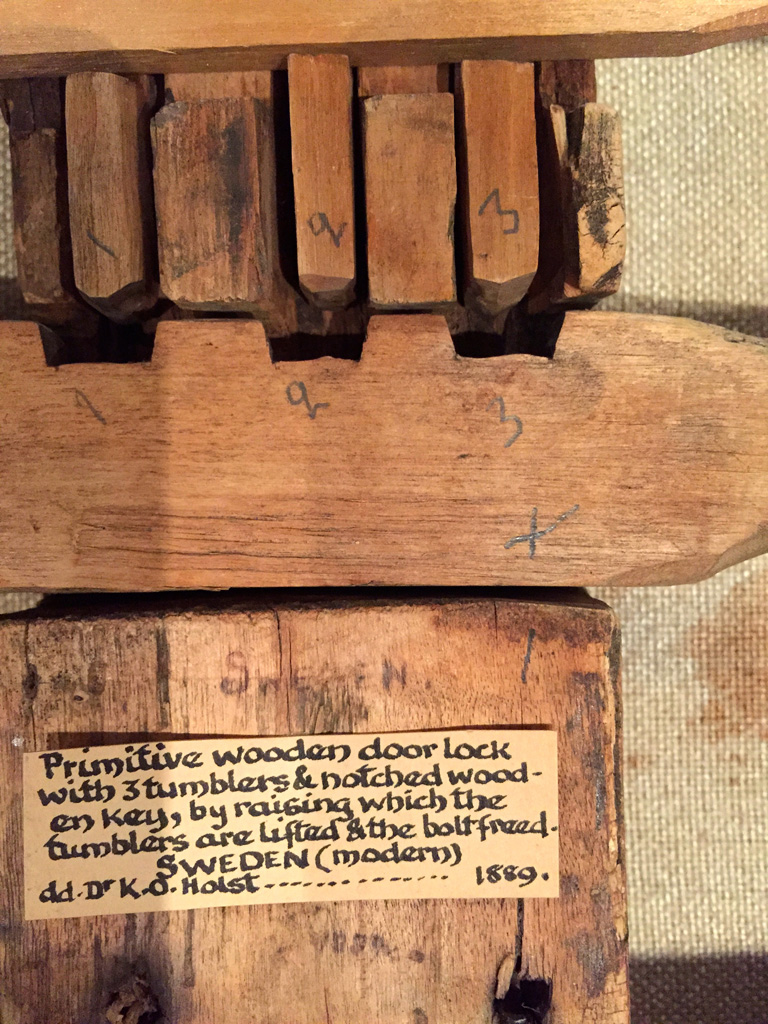 1 2 3
1 2 3
+
1
SWEDEN.
Primitive wooden door lock
with 3 tumblers & notched wood-
en key, by raising which the
tumblers are lifted & the bolt freed.
SWEDEN (modern)
dd. Dr K. O. Holst ................. 1889.